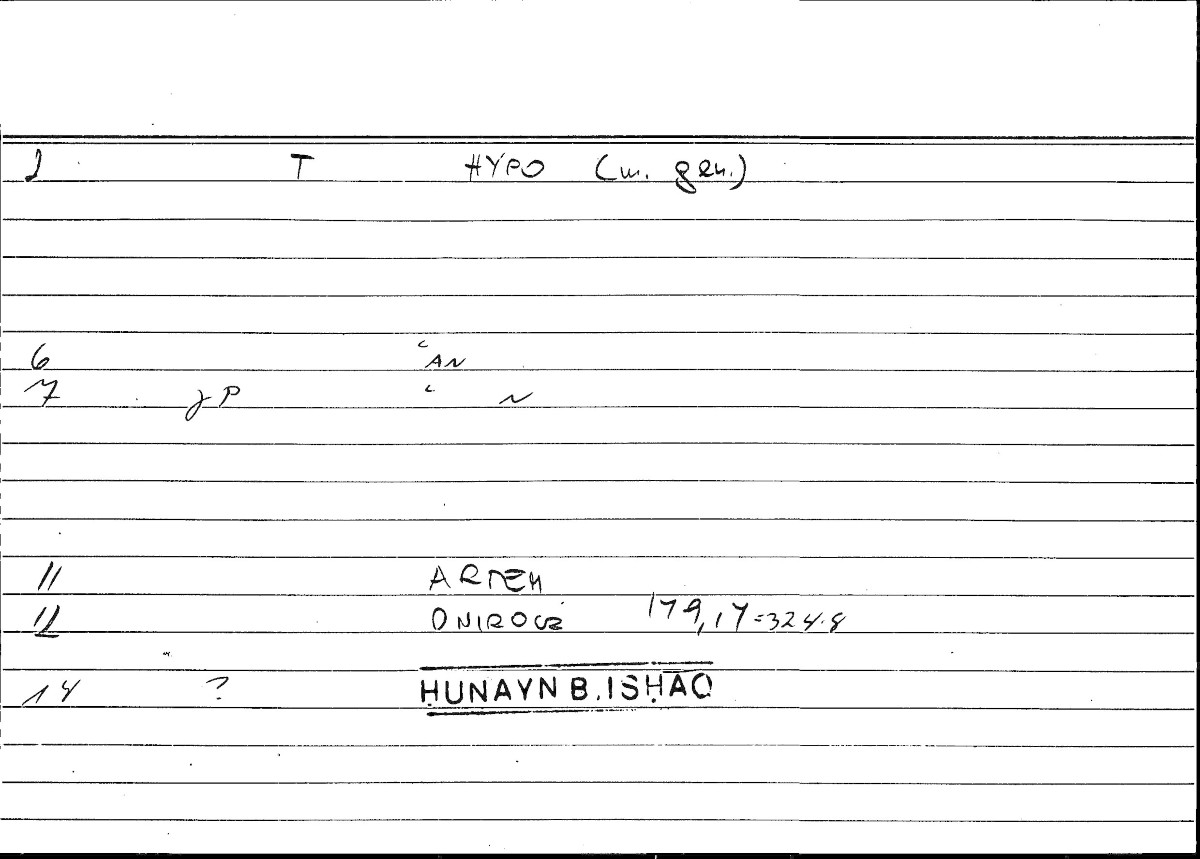 2 T HYPO (w. gen.)
6 ʿAN
7 ʿ N
11 ARTEM
12 ONIROCR 179,17=324.8
14 ? ḤUNAYN B. ISḤĀQ